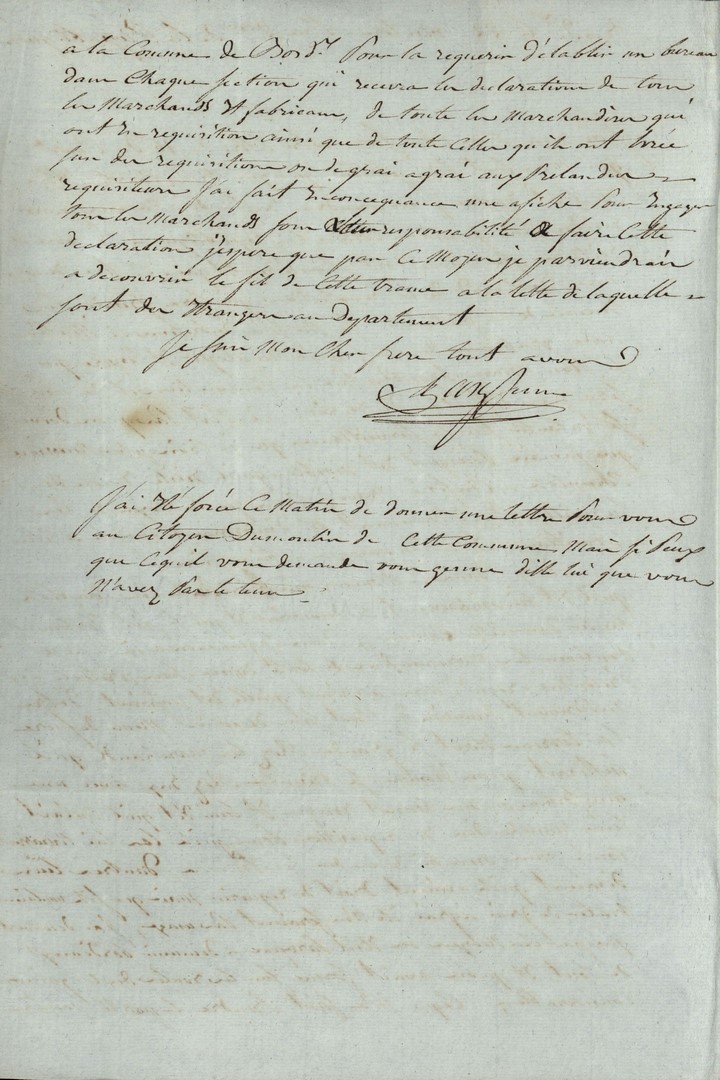 a la Comune de Bord.x Pour la requerir d'établir un bureau
dans Chaque section qui recevra les declarations de tous
les Marchands Et fabricans, de toute les Marchandises qui
ont En requisition ainsi que de toute Celles qu'ils ont livrée
sur des requisitions ou de grai a grai aux Pretendus
requisiteurs J'ai fait En conceqeance une afiche Pour Engager
tous les Marchands sous responsabilité a faire Cette
declaration j'espere que par Ce Moyen je parviendrai
a decouvrir le fil de Cette trame a la tette de laquelle
sont des Etrangers au Departement
Je suis Mon Cher frere tout a vous
J'ai Eté forcé Ce Matin de donner une lettre Pour vous
au Citoyen Dumoulin de Cette Commune Mais si Peux
que Cequil vous demande vous gesne ditte lui que vous
N'avez Pas le tems